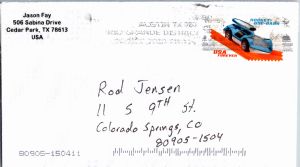 Jason Fay
506 Sabina Drive
Cedar Park, TX 78613
USA
AUSTIN TX 787
RIO GRANDE DISTRICT
USA
FOREVER
Rod Jensen
11 S 9TH St.
Colorado Springs, CO
80905-1504
80905-150411